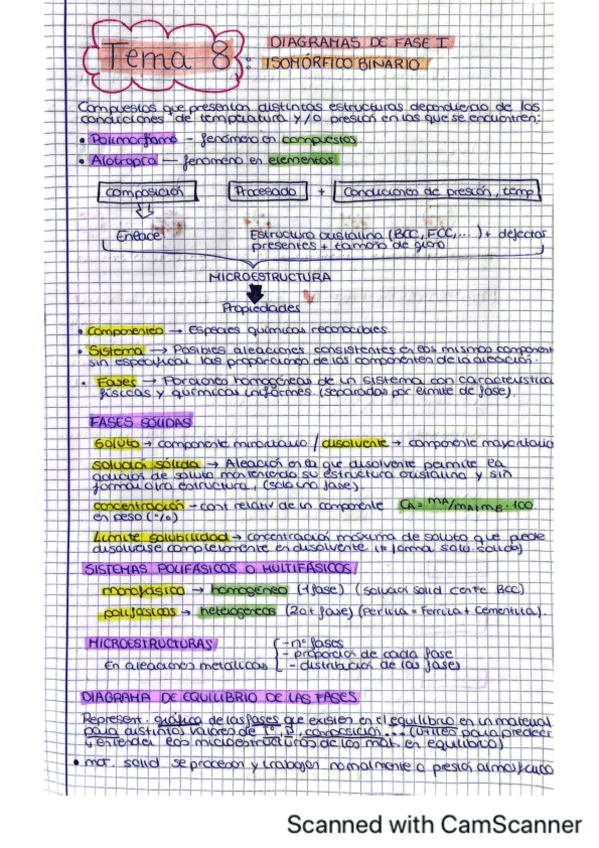 Tema 8:
DIAGRAMAS DE FASE I
ISOMÓRFICO BINARIO
Compuestos que presentan distintas estructuras dependiendo de las
condiciones de temperatura y/o presión en las que se encuentren:
• Polimorfismo - fenómeno en compuestos
• Alotropía — fenómeno en elementos
Composición Procesado + Condiciones de presión, temp
Enlace Estructura cristalina (BCC, FCC, ...) + defectos
presentes + tamaño de grano
MICROESTRUCTURA
Propiedades
• Componentes → Especies químicas reconocibles.
• Sistema → Posibles aleaciones consistentes en los mismos component
sin especificar las proporciones de los componentes de la aleación.
• Fases → Porciones homogéneas de un sistema con característica
físicas y químicas uniformes (separadas por límite de fase).
FASES SÓLIDAS
Soluto → componente minoritario / disolvente → componente mayoritario
solución sólida → Aleación en la que disolvente permite la
de soluto manteniendo su estructura cristalina y sin
formar otra estructura, (solo una fase)
concentración - cant relativ de un componente CA = mA/mA+mB · 100
en peso (%)
Límite solubilidad → concentración máxima de soluto que puede
disolverse completamente en disolvente (= forma solu. sólida)
SISTEMAS POLIFÁSICOS O MULTIFÁSICOS
monofásico → homogéneo (1 fase) (solución solid BCC)
polifásicos → heterogéneos (2 o + fase) (Perlita = Ferrita + Cementita).
MICROESTRUCTURAS
- nº fases
- proporción de cada fase
En aleaciones metálicas - distribución de las fases
DIAGRAMA DE EQUILIBRIO DE LAS FASES
Represent. gráfica de las fases que existen en el equilibrio en un material
para distintos valores de Tª, P, composición ... (útiles para predecir
y entender las microestructuras de los mat. en equilibrio)
• mat. solid se procesan y trabajan normalmente a presión atmosférica
Scanned with CamScanner